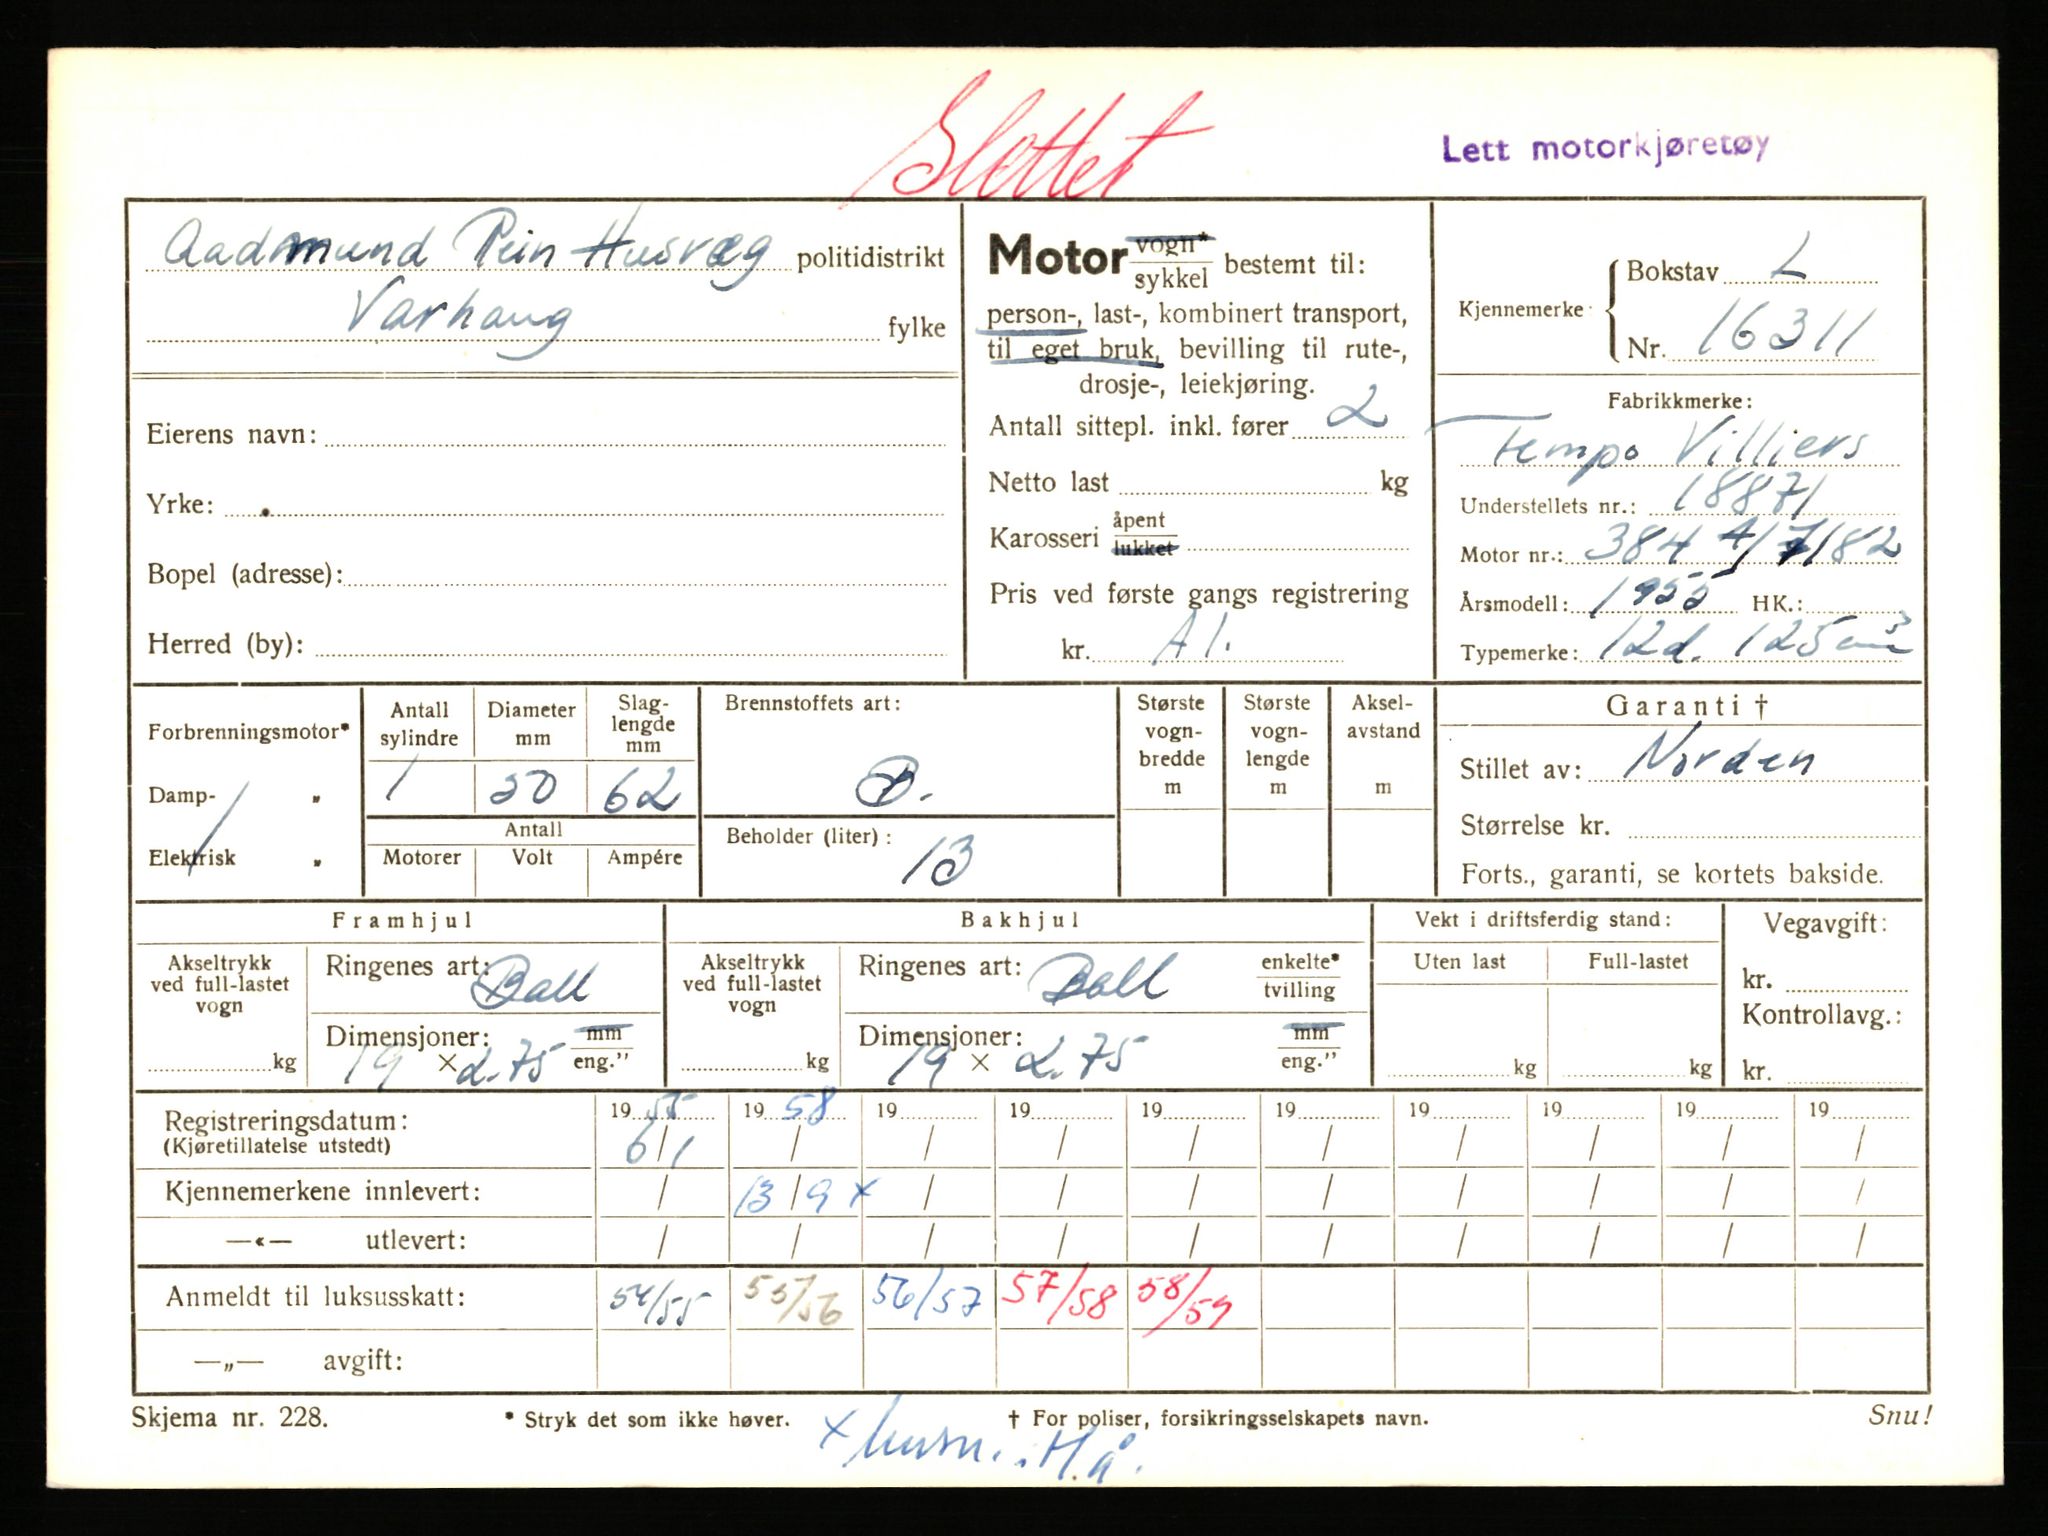 Slettet
Lett motorkjøretøy
Aadmund Rein Husvæg politidistrikt
Varhaug fylke
Eierens navn:
Yrke:
Bopel (adresse):
Herred (by):
Motor vogn* / sykkel bestemt til:
person-, last-, kombinert transport,
til eget bruk, bevilling til rute-,
drosje-, leiekjøring.
Antall sittepl. inkl. fører 2
Netto last kg
Karosseri åpent / lukket
Pris ved første gangs registrering
kr. A1.
Kjennemerke: Bokstav L
Nr. 16311
Fabrikkmerke:
Tempo Villiers
Understellets nr.: 18871
Motor nr.: 384 A/7182
Årsmodell: 1955 HK.:
Typemerke: 12d. 125 cm3
Forbrenningsmotor*
Damp- „
Elektrisk „
Antall sylindre Diameter mm Slag-lengde mm
1 50 62
Antall
Motorer Volt Ampére
Brennstoffets art:
B.
Beholder (liter):
13
Største vogn-bredde m
Største vogn-lengde m
Aksel-avstand m
Garanti †
Stillet av: Norden
Størrelse kr.
Forts., garanti, se kortets bakside.
Framhjul
Akseltrykk ved full-lastet vogn
kg
Ringenes art: Ball
Dimensjoner: mm / eng."
19 × 2.75
Bakhjul
Akseltrykk ved full-lastet vogn
kg
Ringenes art: Ball enkelte* / tvilling
Dimensjoner: mm / eng."
19 × 2.75
Vekt i driftsferdig stand:
Uten last Full-lastet
kg kg
Vegavgift:
kr.
Kontrollavg.:
kr.
Registreringsdatum: 1955 1958 19 19 19 19 19 19 19 19
(Kjøretillatelse utstedt) 6/1 / / / / / / / / /
Kjennemerkene innlevert: / 13/9 x / / / / / / / /
—«— utlevert: / / / / / / / / / /
Anmeldt til luksusskatt: 54/55 55/56 56/57 57/58 58/59
—„— avgift:
Skjema nr. 228. * Stryk det som ikke høver. † For poliser, forsikringsselskapets navn. Snu!
x H.å.